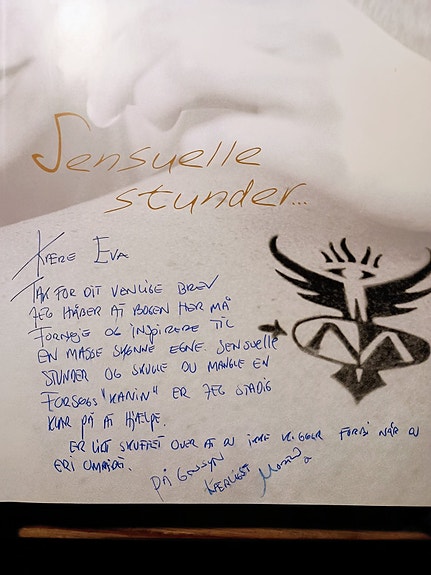 Sensuelle
stunder...
Kære Eva
Tak for dit venlige brev
jeg håber at bogen her må
fornøje og inspirere til
en masse skønne egne sensuelle
stunder og skulle du mangle en
forsøgs "kanin" er jeg stadig
klar på at hjælpe.
er lidt skuffet over at du ikke kigger forbi når du
er i området.
på gensyn
kærligst